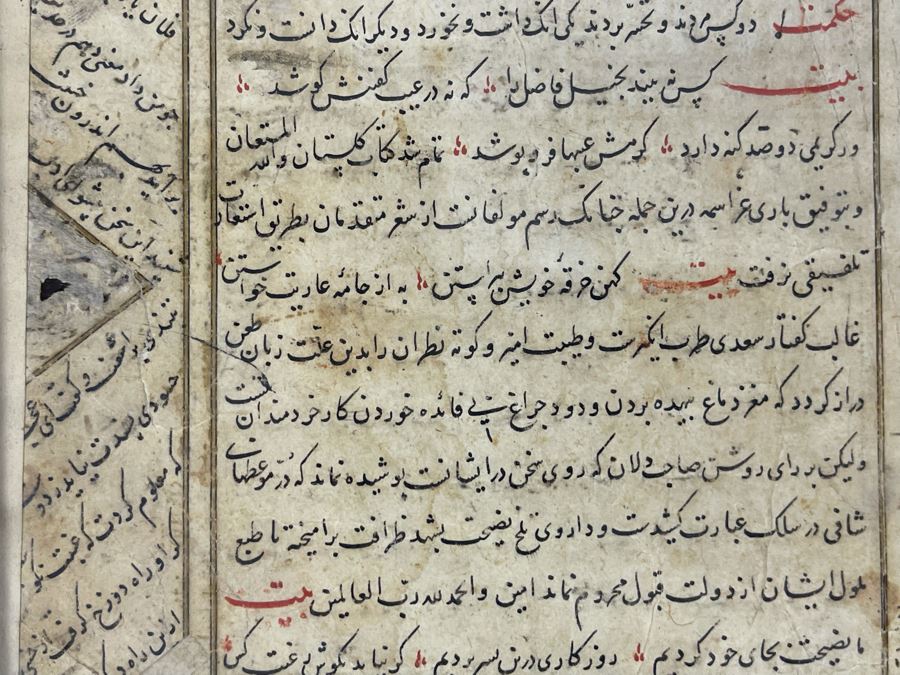 حکمت دو کس مردند و تحسر بردند یکی آنک داشت و نخورد و دیگر آنک دانست و نکرد
بیت کس نبیند بخیل فاضل را که نه در عیب گفتنش کوشد
ور کریمی دو صد گنه دارد کرمش عیبها فرو پوشد تمام شد کتاب گلستان والله المستعان
و بتوفیق باری عز اسمه درین جمله چنانک رسم مولفانست از شعر متقدمان بطریق استعارت
تلفیقی نرفت بیت کهن خرقهٔ خویش پیراستن به از جامهٔ عاریت خواستن
غالب گفتار سعدی طرب انگیزست و طیبت آمیز و کوته نظران را بدین علت زبان طعن
دراز گردد که مغز دماغ بیهده بردن و دود چراغ بی فائده خوردن کار خردمندان نیست
ولیکن بر رای روشن صاحب دلان که روی سخن در ایشانست پوشیده نماند که در موعظهای
شافی در سلک عبارت کشیدست و داروی تلخ نصیحت بشهد ظرافت برآمیخته تا طبع
ملول ایشان از دولت قبول محروم نماند آمین والحمد لله رب العالمین بیت
ما نصیحت بجای خود کردیم روزگاری درین بسر بردیم گر نیاید بگوش رغبت کس
این سخن
که معلوم کردت که غیبت
که او راه دوزخ گرفت از
ازین راه